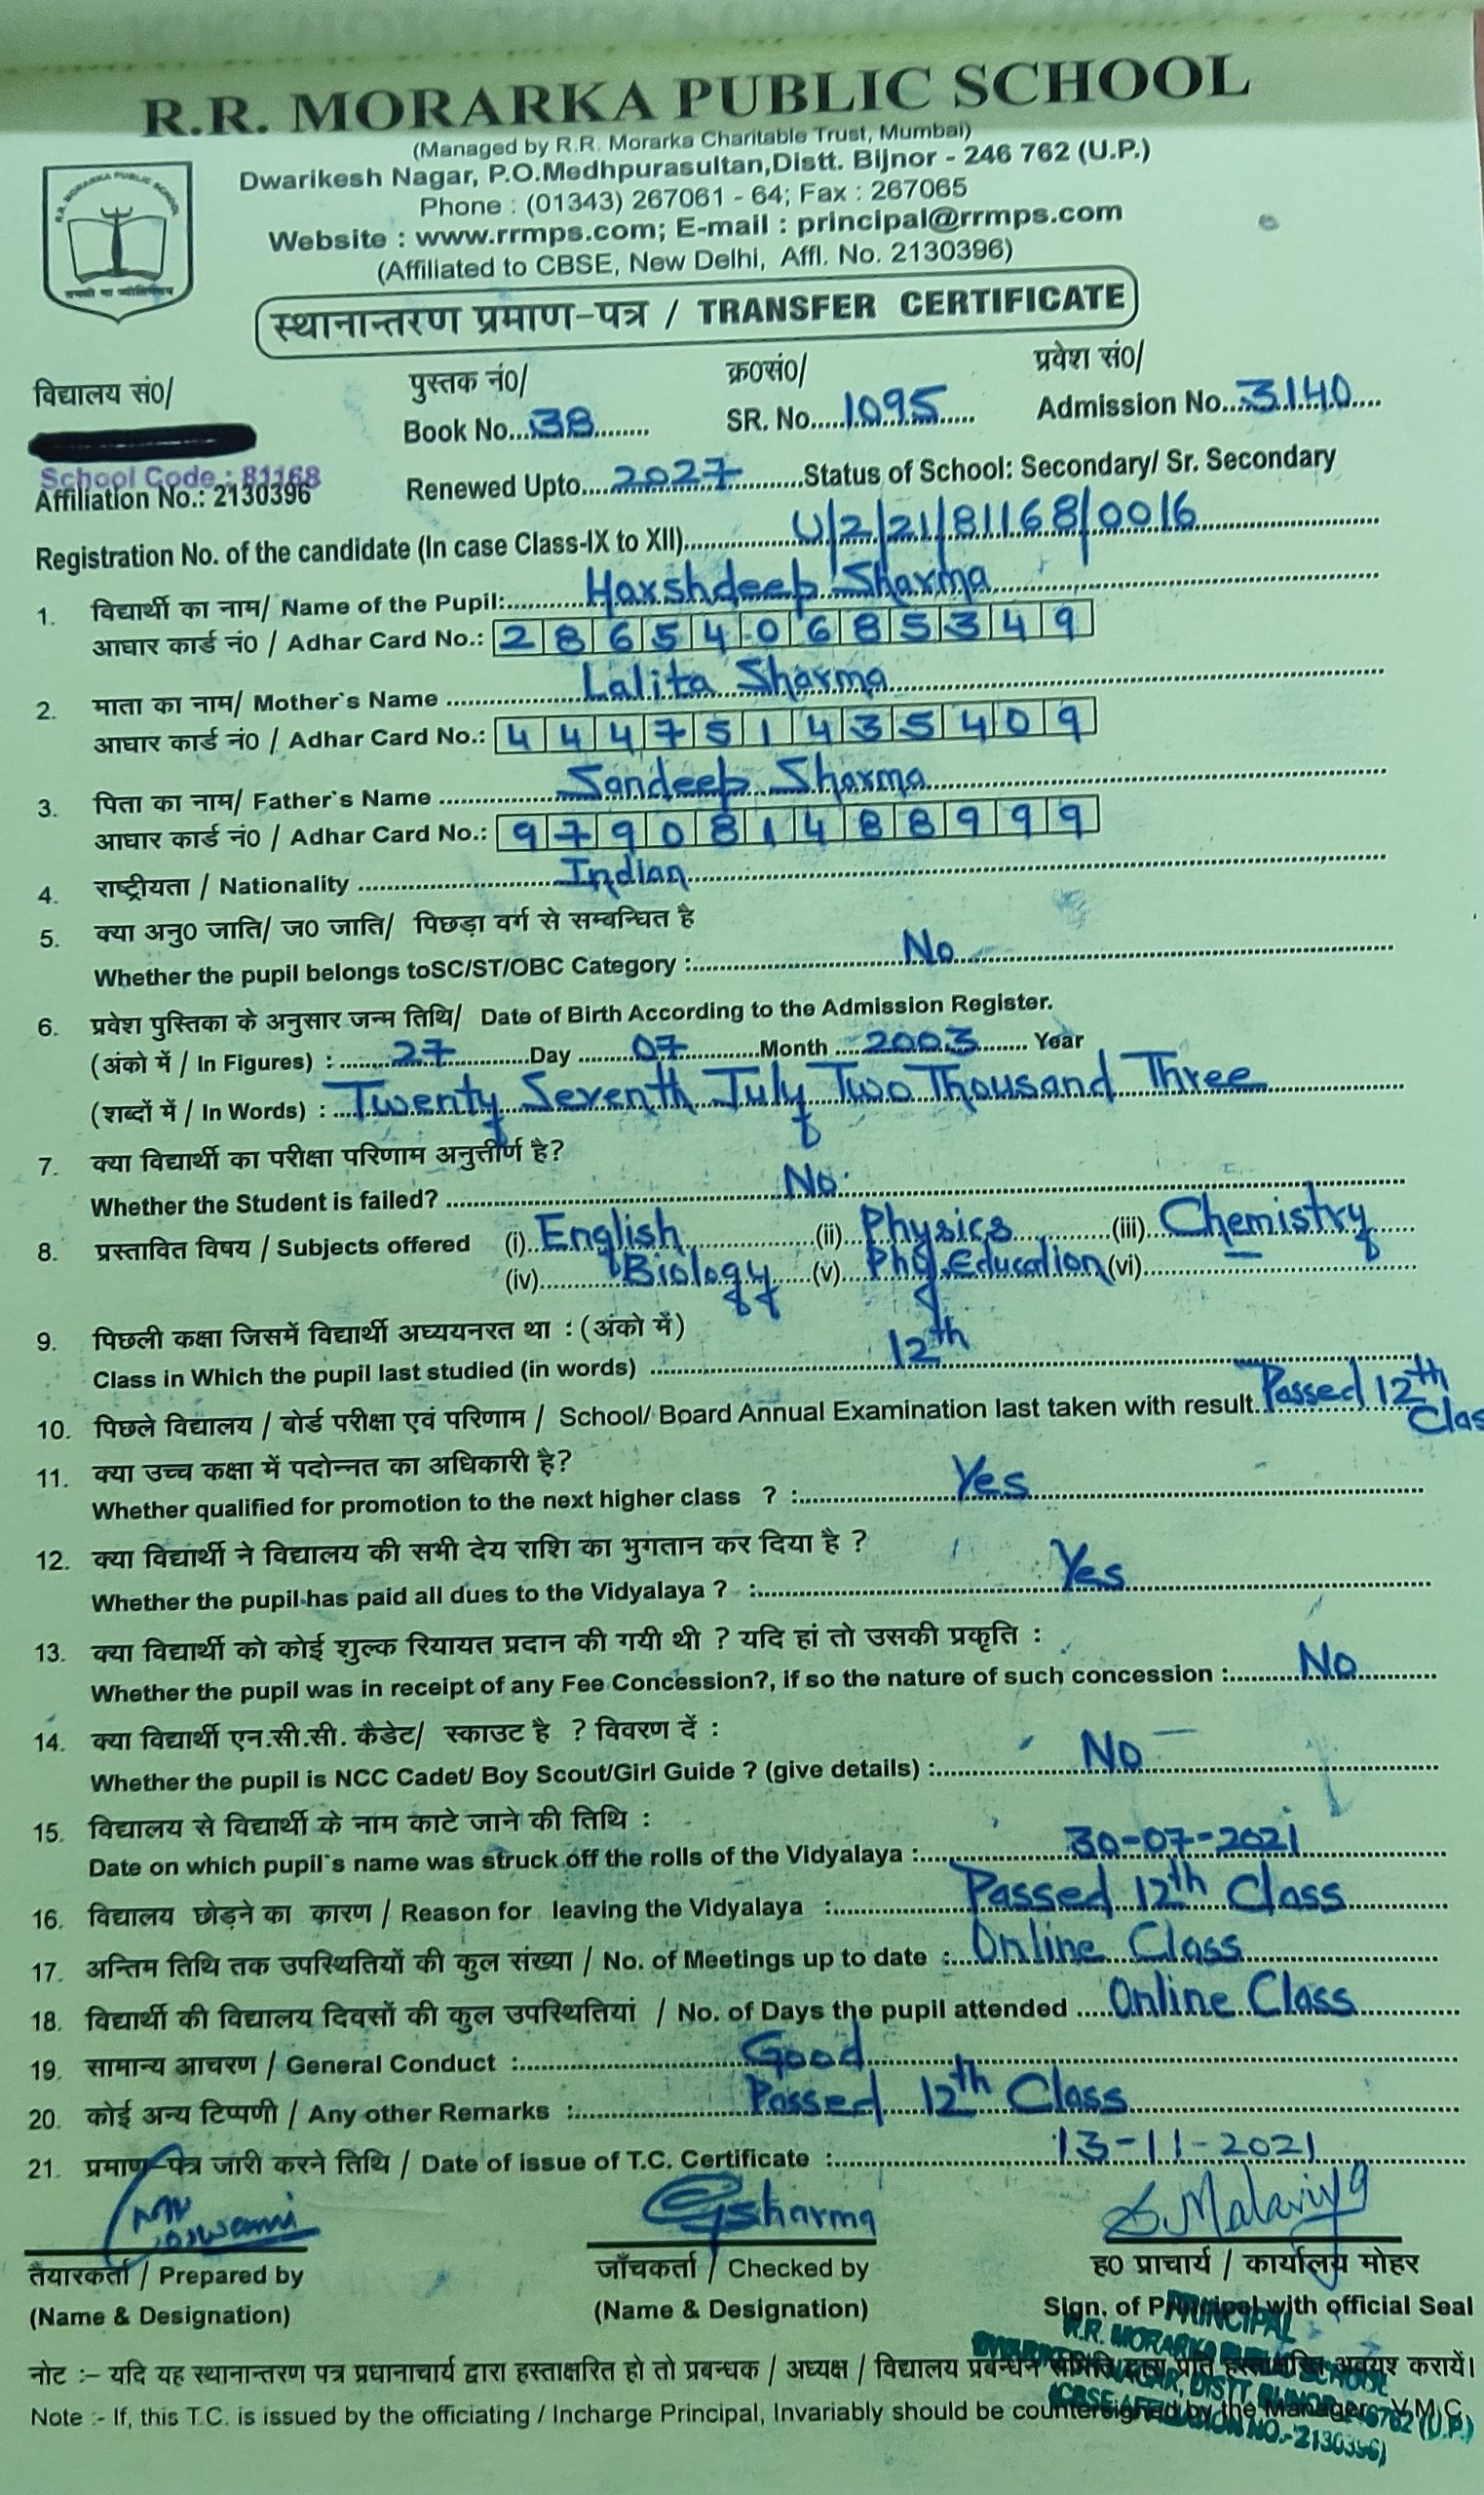 R.R. MORARKA PUBLIC SCHOOL
(Managed by R.R. Morarka Charitable Trust, Mumbai)
Dwarikesh Nagar, P.O.Medhpurasultan,Distt. Bijnor - 246 762 (U.P.)
Phone : (01343) 267061 - 64; Fax : 267065
Website : www.rrmps.com; E-mail : principal@rrmps.com
(Affiliated to CBSE, New Delhi, Affl. No. 2130396)
R.R. MORARKA PUBLIC SCHOOL
स्थानान्तरण प्रमाण-पत्र / TRANSFER CERTIFICATE
विद्यालय सं0/ पुस्तक नं0/ क्र0सं0/ प्रवेश सं0/
Book No...38........ SR. No.....1095..... Admission No...3140....
School Code : 81168
Affiliation No.: 2130396 Renewed Upto....2027.........Status of School: Secondary/ Sr. Secondary
Registration No. of the candidate (In case Class-IX to XII)...............U/2/21/81168/0016
1. विद्यार्थी का नाम/ Name of the Pupil:..........Harshdeep Sharma
आधार कार्ड नं0 / Adhar Card No.: 286540685349
2. माता का नाम/ Mother`s Name ..............Lalita Sharma
आधार कार्ड नं0 / Adhar Card No.: 444751435409
3. पिता का नाम/ Father`s Name ..............Sandeep Sharma
आधार कार्ड नं0 / Adhar Card No.: 979081488999
4. राष्ट्रीयता / Nationality ..............Indian
5. क्या अनु0 जाति/ ज0 जाति/ पिछड़ा वर्ग से सम्बन्धित है
Whether the pupil belongs toSC/ST/OBC Category :..............No
6. प्रवेश पुस्तिका के अनुसार जन्म तिथि/ Date of Birth According to the Admission Register.
(अंको में / In Figures) : .......27..........Day .......07..........Month ....2003....... Year
(शब्दों में / In Words) : ..Twenty Seventh July Two Thousand Three
7. क्या विद्यार्थी का परीक्षा परिणाम अनुत्तीर्ण है?
Whether the Student is failed? ..............No
8. प्रस्तावित विषय / Subjects offered (i)..English..........(ii)..Physics..........(iii)..Chemistry....
(iv)........Biology....(v)...Phy.Education(vi)..............
9. पिछली कक्षा जिसमें विद्यार्थी अघ्ययनरत था : (अंको में)
Class in Which the pupil last studied (in words) ..............12th
10. पिछले विद्यालय / बोर्ड परीक्षा एवं परिणाम / School/ Board Annual Examination last taken with result..Passed 12th
11. क्या उच्च कक्षा में पदोन्नत का अधिकारी है?
Whether qualified for promotion to the next higher class ? :..............Yes
12. क्या विद्यार्थी ने विद्यालय की सभी देय राशि का भुगतान कर दिया है ?
Whether the pupil has paid all dues to the Vidyalaya ? :..............Yes
13. क्या विद्यार्थी को कोई शुल्क रियायत प्रदान की गयी थी ? यदि हां तो उसकी प्रकृति :
Whether the pupil was in receipt of any Fee Concession?, if so the nature of such concession :........No
14. क्या विद्यार्थी एन.सी.सी. कैडेट/ स्काउट है ? विवरण दें :
Whether the pupil is NCC Cadet/ Boy Scout/Girl Guide ? (give details) :..............No
15. विद्यालय से विद्यार्थी के नाम काटे जाने की तिथि :
Date on which pupil`s name was struck off the rolls of the Vidyalaya :..............30-07-2021
16. विद्यालय छोड़ने का कारण / Reason for leaving the Vidyalaya :..............Passed 12th Class
17. अन्तिम तिथि तक उपस्थितियों की कुल संख्या / No. of Meetings up to date :....Online Class
18. विद्यार्थी की विद्यालय दिवसों की कुल उपस्थितियां / No. of Days the pupil attended .....Online Class
19. सामान्य आचरण / General Conduct :..............Good
20. कोई अन्य टिप्पणी / Any other Remarks :..............Passed 12th Class
21. प्रमाण-पत्र जारी करने तिथि / Date of issue of T.C. Certificate :..............13-11-2021
sharma S. Malaviya
तैयारकर्ता / Prepared by जाँचकर्ता / Checked by ह0 प्राचार्य / कार्यालय मोहर
(Name & Designation) (Name & Designation) Sign. of Principal with official Seal
PRINCIPAL
R.R. MORARKA PUBLIC SCHOOL
नोट :– यदि यह स्थानान्तरण पत्र प्रधानाचार्य द्वारा हस्ताक्षरित हो तो प्रबन्धक / अध्यक्ष / विद्यालय प्रबन्धन समिति द्वारा प्रति हस्ताक्षरित अवयश करायें।
Note :- If, this T.C. is issued by the officiating / Incharge Principal, Invariably should be countersigned by the Manager, V.M.C.